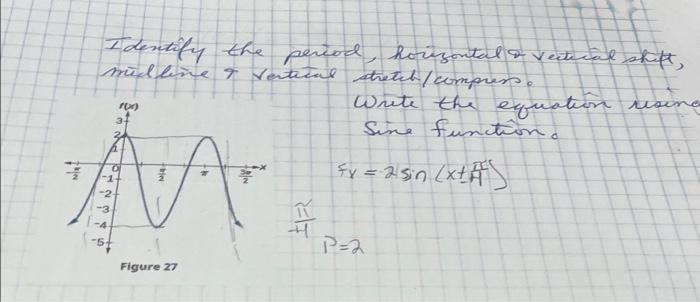 Identify the period, horizontal & vertical shift,
midline & vertical stretch/compress.
Write the equation using
Sine function.
f(x)
3
2
1
0
-1
-2
-3
-4
-5
-π/2
π/2
π
3π/2
x
Figure 27
= 2 sin (x±π/4)
π/4
P=2